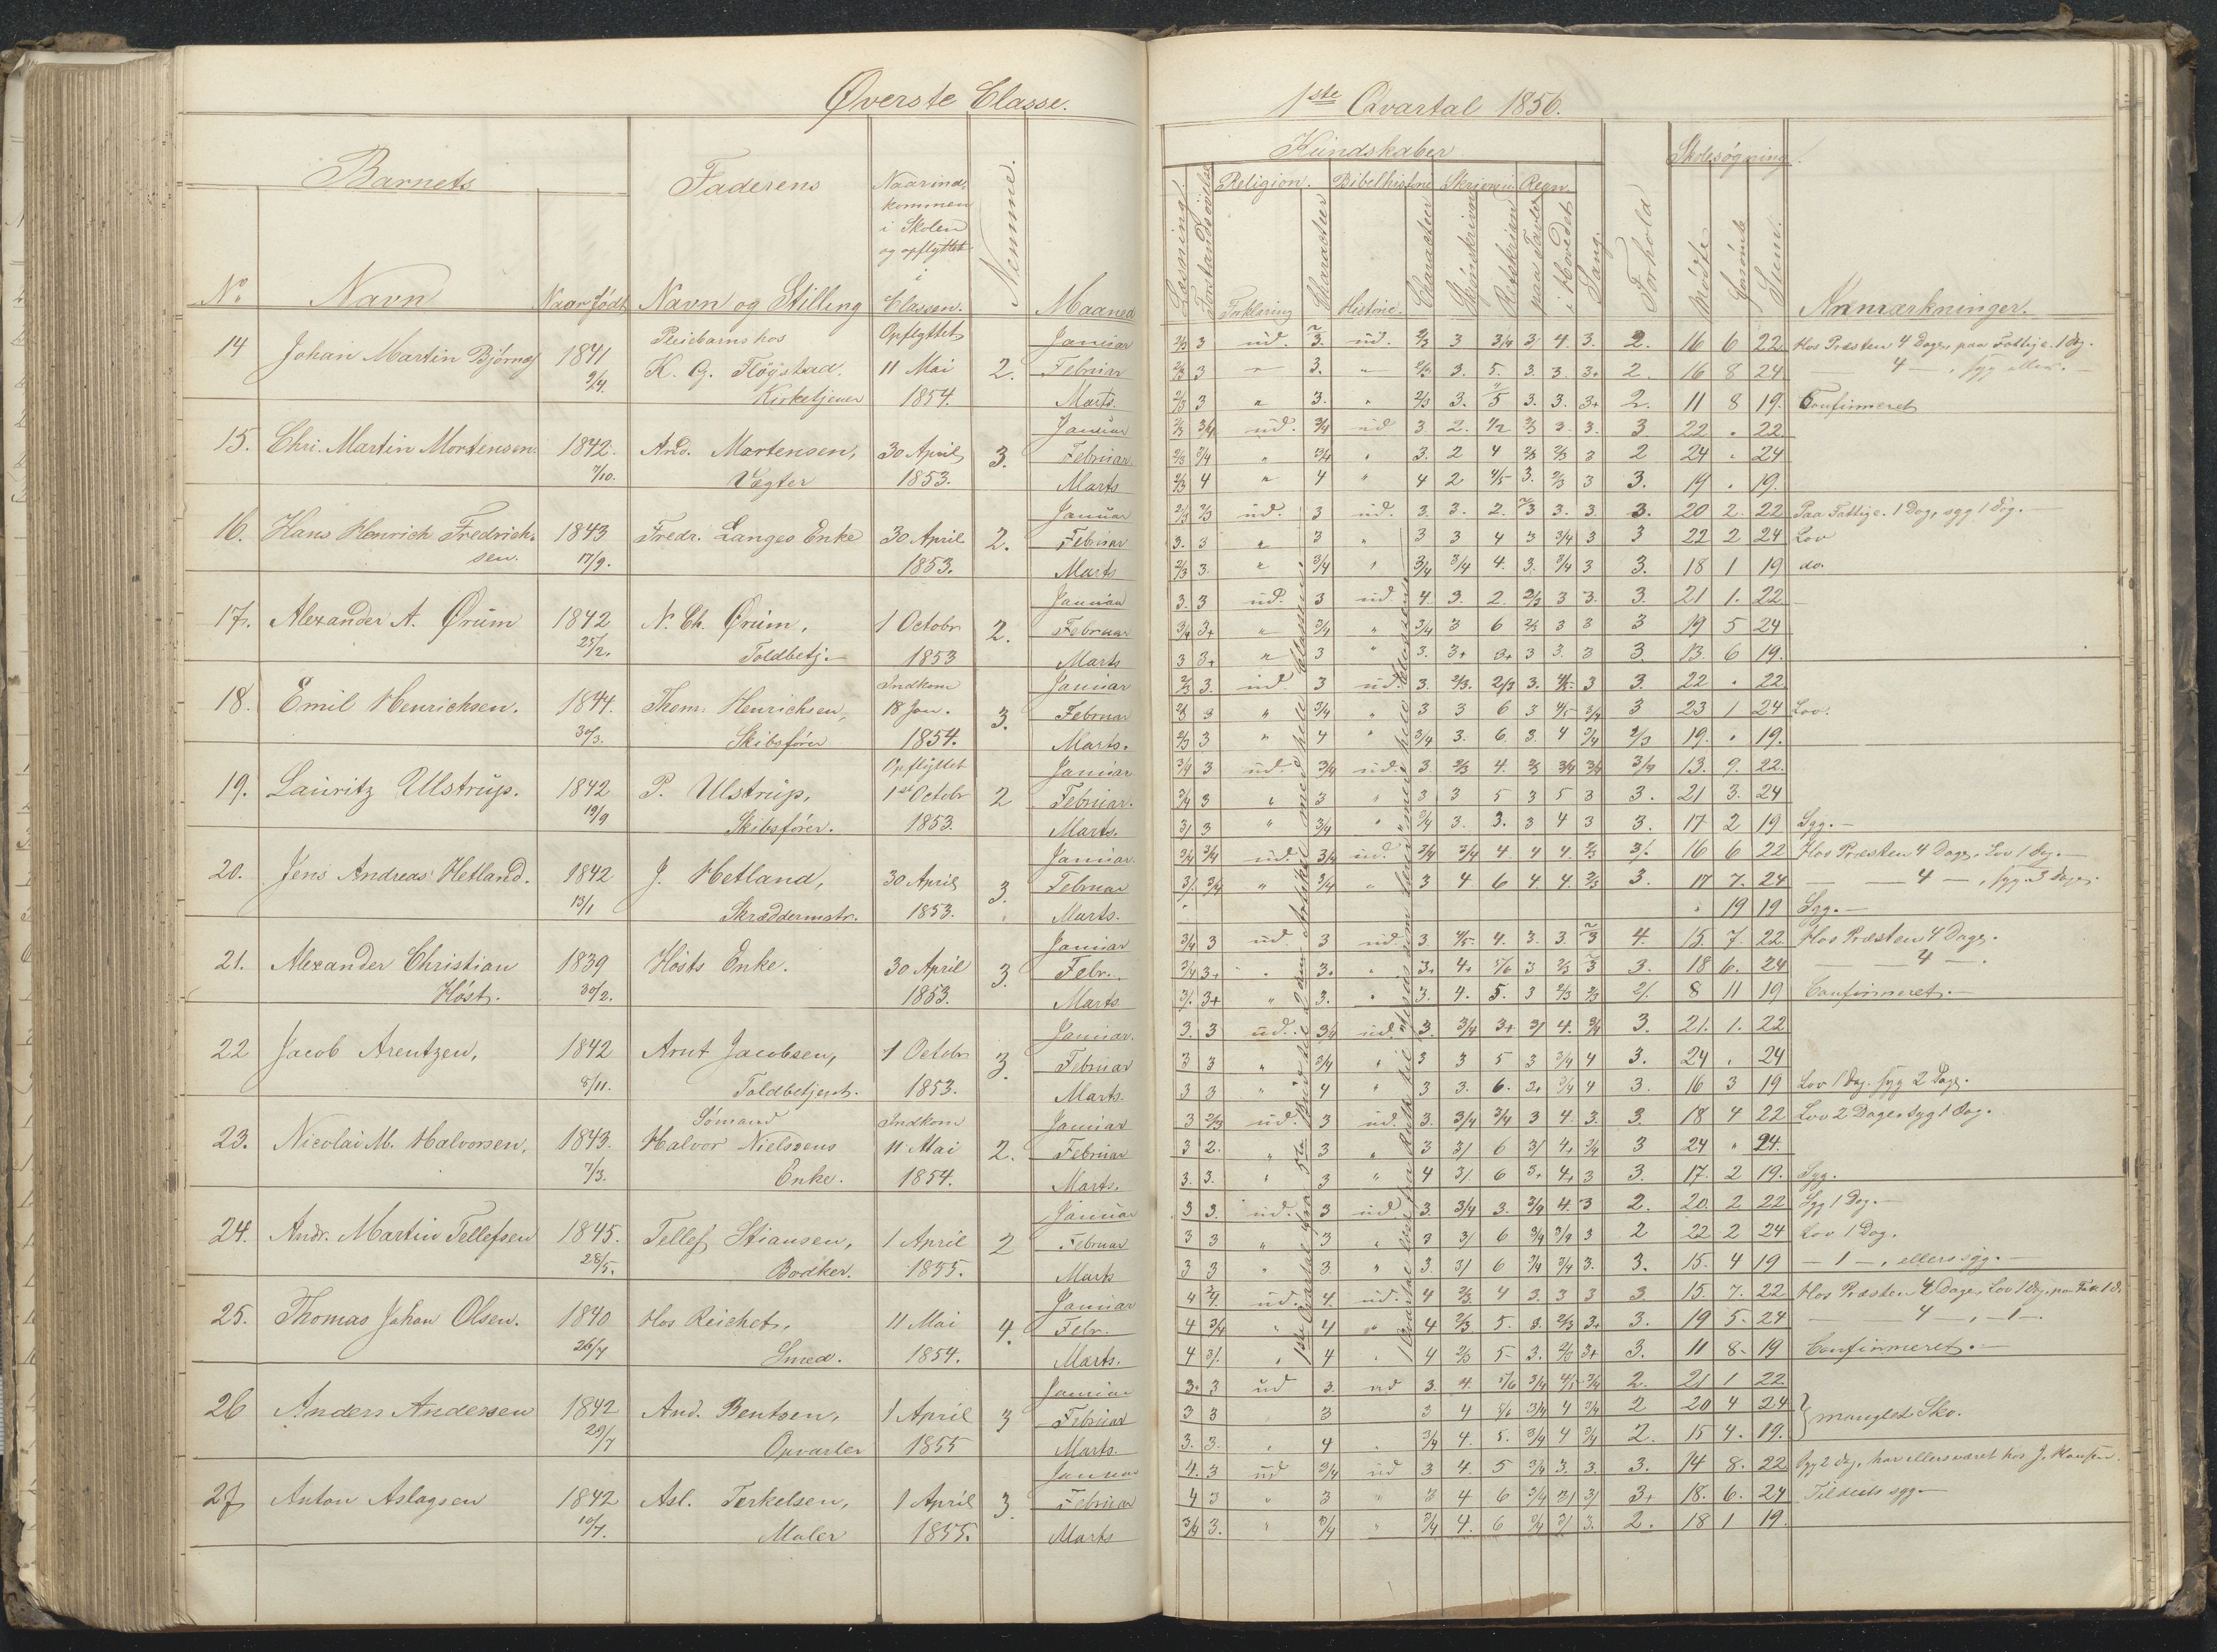 Øverste Classe.
Barnets
Faderens
Naar ind-
kommen
i Skolen
og opflyttet
i
Classen.
Nemme.
No
Navn
Naar født
Navn og Stilling
Maaned
14
Johan Martin Bjørnes
1841
9/4
Pleiebarn hos
K. G. Fløgstad.
Kirketjener
Opflyttet
11 Mai
1854.
2.
Januar
Februar
Marts.
15.
Chri. Martin Mortensen.
1842.
7/10.
And. Mortensen,
Vægter
30 April
1853.
3.
Januar
Februar
Marts
16.
Hans Henrich Fredrich-
sen.
1843
17/9.
Fredr. Langes Enke
30 April
1853.
2.
Januar
Februar
Marts
17.
Alexander A. Ørum
1842
25/2.
N. Ch. Ørum,
Toldbetj.
1 Octobr
1853
2.
Januar
Februar
Marts
18.
Emil Henrichsen.
1844.
30/3.
Them. Henrichsen,
Skibsfører
Indkom
18 Jan.
1854.
3.
Januar
Februar
Marts.
19.
Lauritz Ulstrup.
1842
19/9
P. Ulstrup,
Skibsfører.
Opflyttet
1st Octobr
1853.
2
Januar
Februar.
Marts.
20.
Jens Andreas Hetland.
1842
13/1
J. Hetland,
Skræddermstr.
30 April
1853.
3.
Januar.
Februar
Marts.
21.
Alexander Christian
Høst.
1839
30/2.
Høsts Enke.
30 April
1853.
3.
Januar
Febr.
Marts
22
Jacob Arentzen,
1842
8/11.
Arnt Jacobsen,
Toldbetjent.
1 Octobr
1853.
3.
Januar.
Februar
Marts.
23.
Nicolai M. Halvorsen,
1843.
7/3.
Sømand
Halvor Nielsens
Enke.
Indkom
11 Mai
1854.
2.
Januar
Februar
Marts.
24.
Andr. Martin Tellefsen
1845.
28/5.
Tellef Stiansen,
Bødker.
1 April
1855.
2
Januar
Februar
Marts
25.
Thomas Johan Olsen.
1840
26/7
Hos Reichet,
Smed.
11 Mai
1854.
4.
Januar
Febr.
Marts.
26
Anders Andersen
1842
29/7
And. Bentsen,
Opvarter
1 April
1855
3
Januar
Februar
Marts.
27
Anton Aslagsen
1842
10/7.
Asl. Terkelsen,
Maler
1 April
1855.
3.
Januar
Februar
Marts
1ste Qvartal 1856.
Kundskaber
Skolesøgning.
Læsning.
Forstandsøvelse
Religion.
Bibelhistorie
Skrivning
Regn.
Forklaring
Character
Historie.
Character
Skjønskrivn
Retskrivn
paa Tavle
i Hovedet
Sang.
Forhold
Mødte
Forsømte
Sum.
Anmærkninger.
2/3 3 ud. 3. ud. 2/3 3 3/4 3 4. 3. 2. 16 6 22 Hos Præsten 4 Dage, paa Fattigc. 1 Dg.
2/3 3 " 3. " 2/3 3. 5. 3. 3. 3+ 2. 16 8 24 — 4 —, syg ellers.
2/3 3 " 3. " 2/3 3. 5 3. 3. 3+ 2. 11 8 19. Confirmeret
2/3 3/4 ud. 3/4 ud 3 2. 1/2 2/3 3 3. 3 22 . 22
2/3 3/4 " 3/4 " 3. 2 4 2/3 2/3 3 2 24 . 24
2/3 4 " 4 " 4 2 4/5 3. 2/3 3 3. 19 . 19.
2/3 2/3 ud. 3 ud. 3. 3. 2. 3 3. 3. 3. 20 2. 22 Paa Fattigc. 1 Dag, syg 1 Dg.
3. 3 " 3 " 3 3 4 3 3/4 3 3 22 2 24 Lov
2/3 3. " 3/4 " 3/4 3/4 4. 3. 3/4 3 3. 18 1 19 do.
3. 3 ud. 3 ud. 4. 3. 2. 2/3 3 3. 3. 21 1. 22
3/4 3+ " 3/4 " 3/4 3 6 2/3 3 3 3 19 5 24
3 3+ " 3 " 3. 3+ 3+ 3 3. 3 3. 13. 6 19.
2/3 3. ud. 3 ud. 3. 2/3. 2/3 3. 4/5. 3 3. 22 . 22
2/3 3 " 3/4 " 3 3 6 3 4/5 3/4 3 23 1 24 Lov.
2/3 3 " 4 " 3/4 3. 6. 3. 4 3/4 2/3 19. . 19.
3/4 3 ud. 3/4 ud. 3. 2/3 4. 2/3 3/4 3/4 3/4 13. 9. 22.
3/4 3 " 3 " 3 3 5 3 5 3 3. 21 3. 24
3/ 3 " 3/4 " 3/4 3. 3. 3 4 3 3. 17 2 19 Syg.
3/4 3/4 ud. 3/4 ud. 3/4 3/4 4 4 4. 2/3 3/. 16 6 22 Hos Præsten 4 Dage, Lov 1 Dg.
3/. 3/4 " 3/4 " 3 4. 6 4 4. 2/3 3. 17 7. 24 — 4 —, syg 3 Dage.
. 19 19 Syg.
3/4 3 ud. 3 ud. 3. 4/5. 4. 3. 3. 3 4. 15. 7. 22 Hos Præsten 4 Dage.
3/4 3+ " 3+ " 3+ 4+ 5/6 3 2/3 3 3. 18 6. 24 — 4 —.
3/. 3+ " 3. " 3. 4. 5. 3 2/3 2/3 2/. 8 11 19 Confirmeret.
3. 3 ud. 3/4 ud. 3. 3/4 3+ 3/ 4. 3/4 3. 21. 1. 22
3 3 " 3/4 " 3 3 5 3 3/4 4 3. 24 . 24
3 3 " 4 " 3 3. 6. 3+ 3/4 4 3. 16 3 19 Lov 1 Dag. syg 2 Dage.
3 2/3 ud. 3 ud. 3. 3/4 3/4 3 4. 3. 3. 18 4 22 Lov 2 Dage, syg 1 Dag.
3 2. " 3 " 3 3/ 6 3/ 4+ 3/4 3 24 " 24.
3. 3. " 3 " 4 3/ 6 3+ 4+ 3 3. 17. 2 19. Syg.
3 3. ud. 3 ud. 3. 3/4 3. 3/4 4. 3 2. 20. 2 22 Syg 1 Dag.
3 3 " 3 " 3 3/ 6 3/4 3/4 3 2 22 2 24 Lov 1 Dag.
3 3 " 3. " 3. 3/ 6 3/4 3/4 3. 3. 15. 4 19 — 1 —, ellers syg.
4 ud. 4. ud. 4 2/3 4 3. 3 3 3 15. 7. 22 Hos Præsten 4 Dage, Lov 1 Dg.
4 3/4 " 4 " 4 2/3. 5. 3. 2/3 3+ 3. 19 5. 24 — 4 —, — 1 —.
4 3/. " 4 " 4 2/3 5 3. 2/3 3+ 3. 11 8. 19 Confirmeret.
3+ 3 ud 3. ud 3. 4. 5/6 3/4 4/5 3/4 2. 21 1 22
3 3 3 3 4 5/6 3/4 4 3/4 2 20 4 24
3. 3. " 4 " 3/4 4. 5. 3/4 4 3/4 2. 15 4. 19.
manglet Sko.
4. 3 ud 3/4 ud 3 4. 5 3/4 3. 3. 3. 14 8. 22 syg 2 Dage, har ellers været hos J. Hansen.
4 3 " 3 " 3 4 6 3/4 3/ 3/ 3+ 18. 6. 24 Tildeels syg.
3/4 3. " 3/4 " 3/4 4. 6 3/4 3/ 3. 2. 18 1 19.